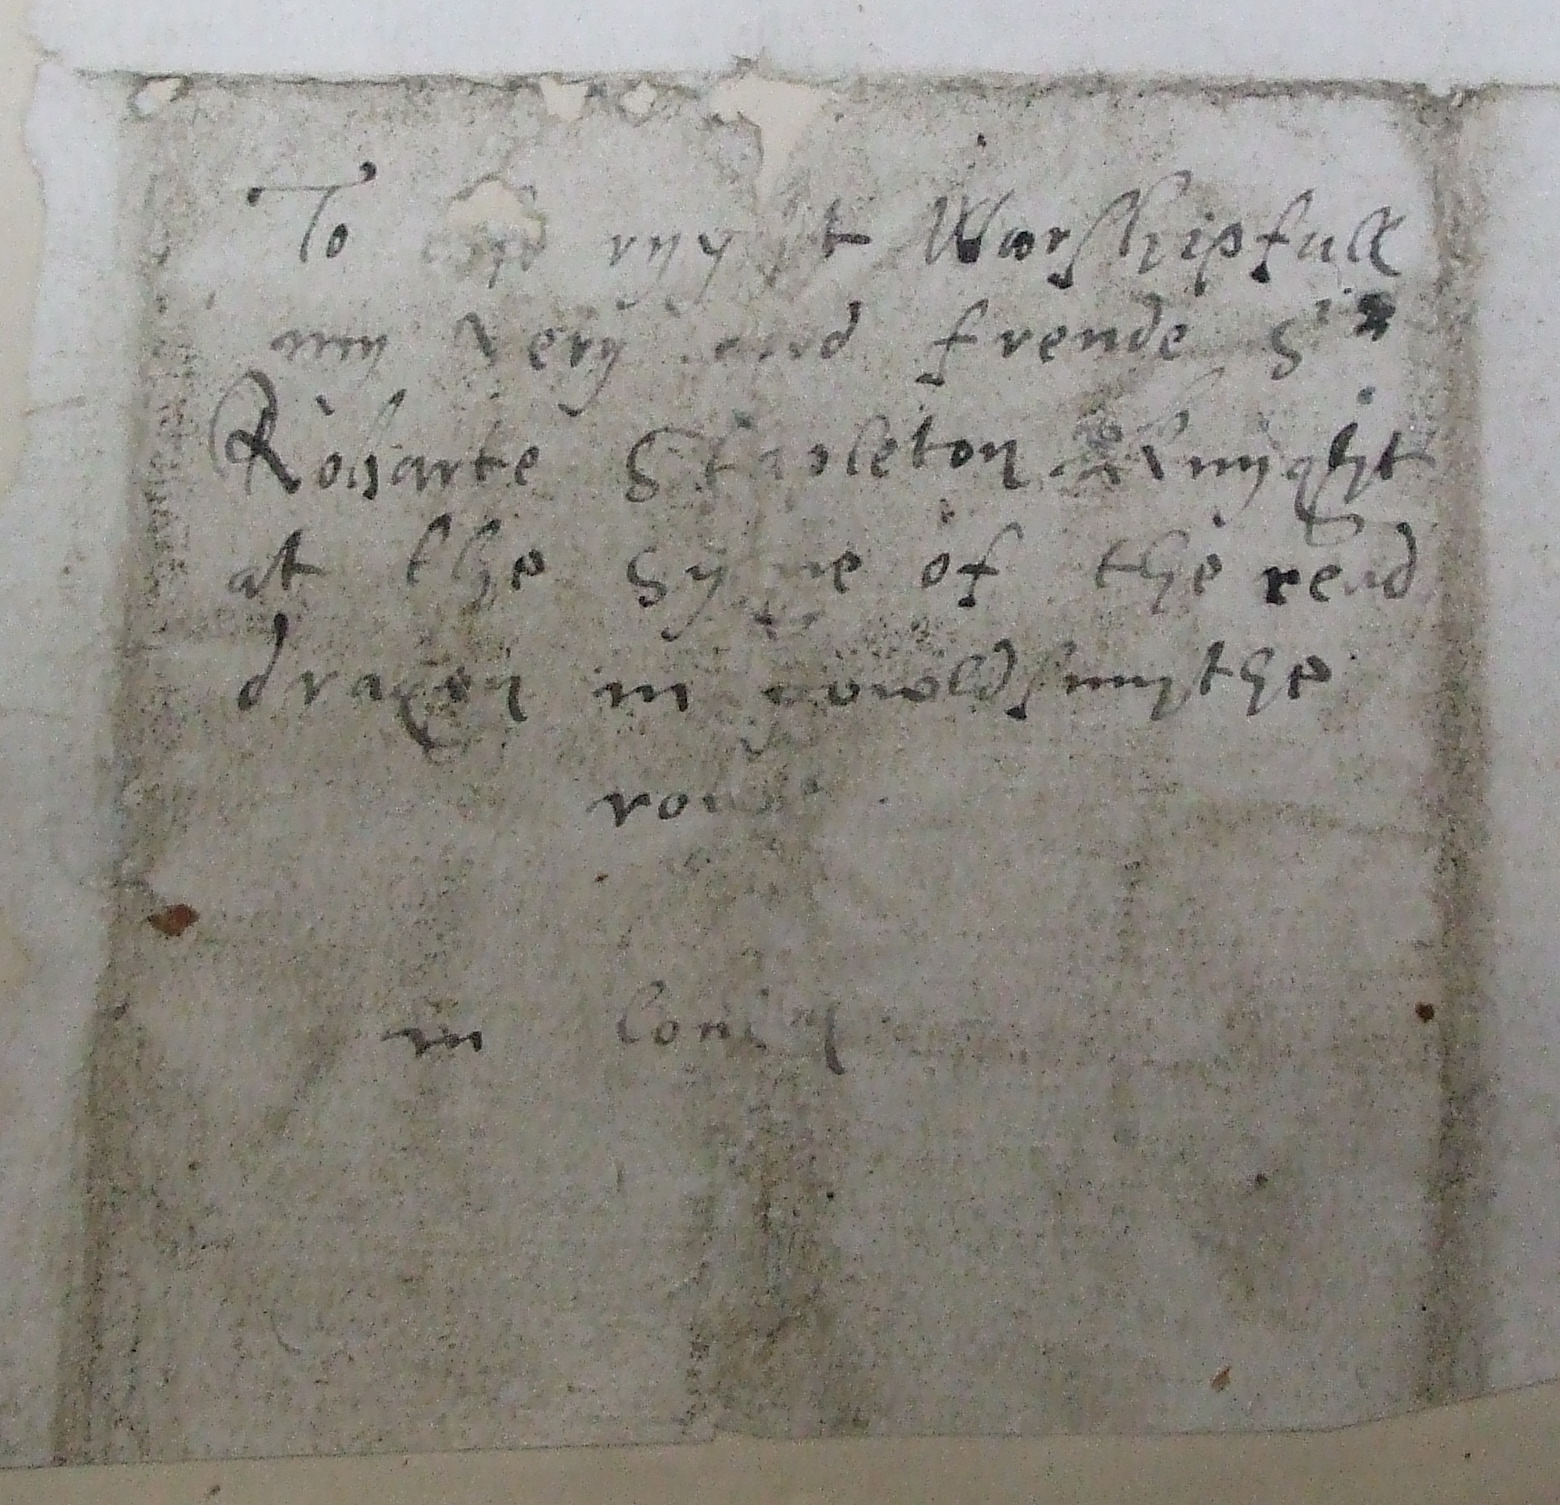 To the ryght Worshipfull
my very frende Sir
Robarte Stapleton Knyght
at the syne of the read
dragen in gowldsmythe
rowe
in london